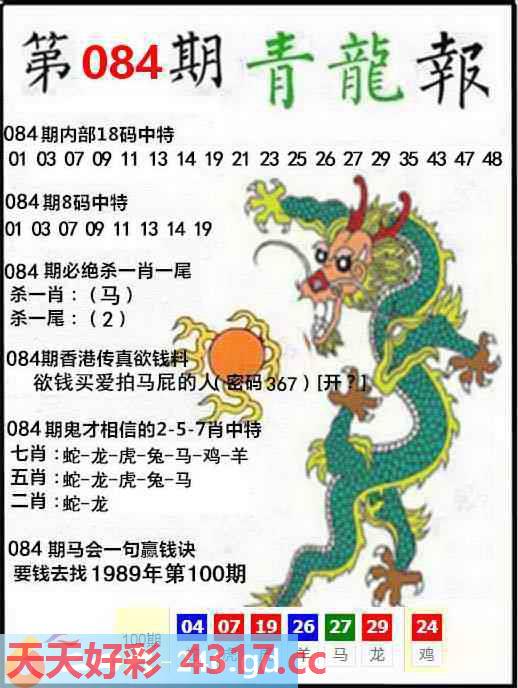 第084期青龍報
084期内部18码中特
01 03 07 09 11 13 14 19 21 23 25 26 27 29 35 43 47 48
084期8码中特
01 03 07 09 11 13 14 19
084期必绝杀一肖一尾
杀一肖：（马）
杀一尾：（2）
084期香港传真欲钱料
欲钱买爱拍马屁的人(密码367)[开？]
084期鬼才相信的2-5-7肖中特
七肖：蛇-龙-虎-兔-马-鸡-羊
五肖：蛇-龙-虎-兔-马
二肖：蛇-龙
084期马会一句赢钱诀
要钱去找1989年第100期
100期 04 07 19 26 27 29 24
虎 羊 马 龙 鸡
天天好彩 4317.cc